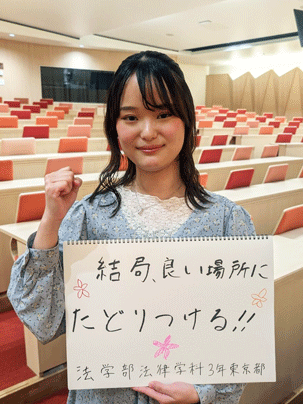 結局、良い場所に
たどりつける!!
法学部法律学科3年東京都